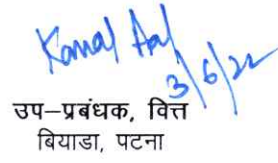 Kamal
3/6/22
उप–प्रबंधक, वित्त
बियाडा, पटना